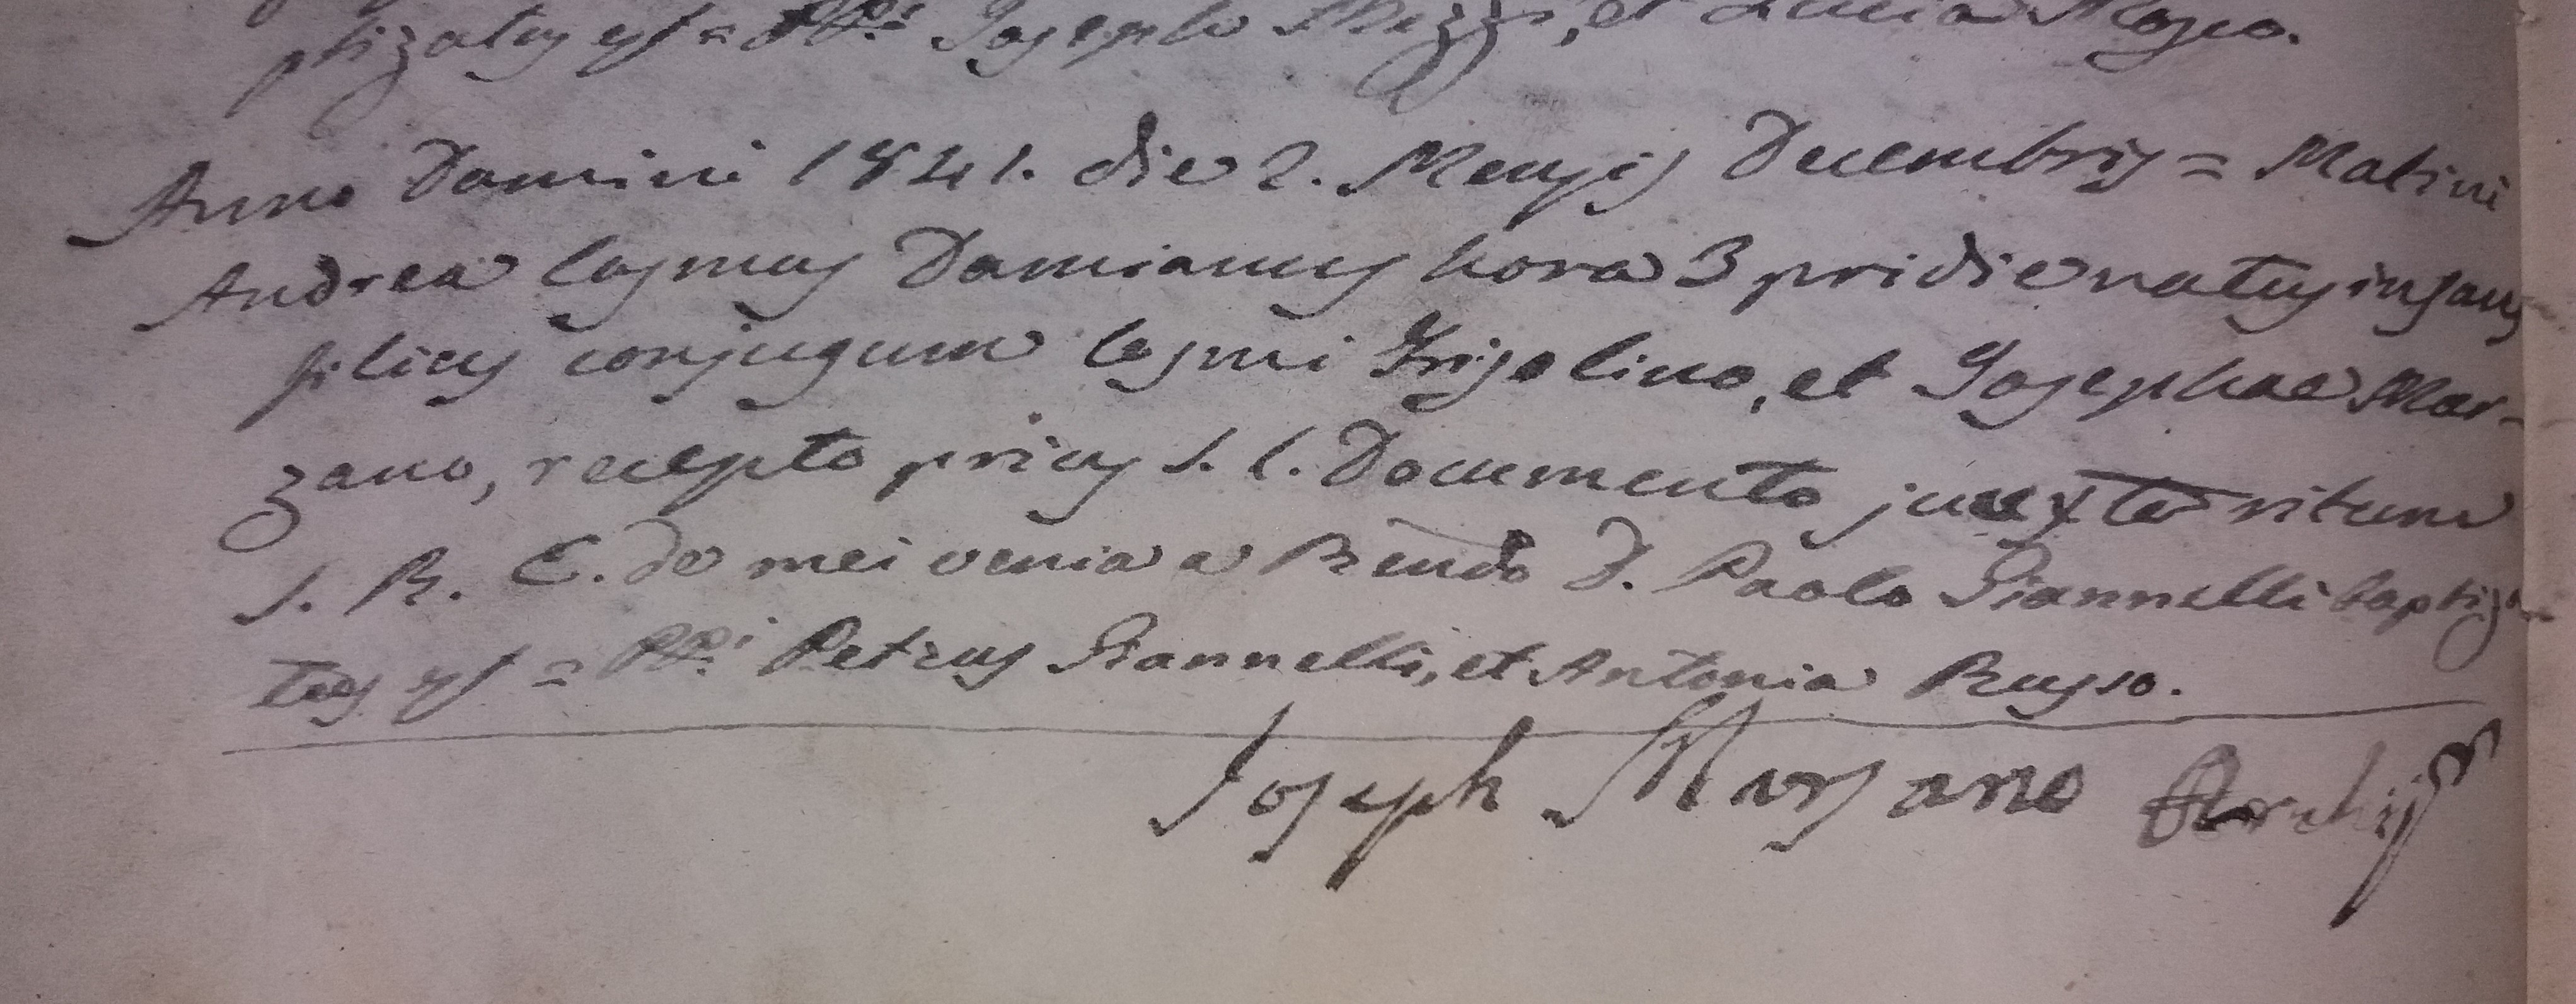 ptizatus est = PPni Joseph Mezzi, et Lucia Mosco.
Anno Domini 1841. die 2. Mensis Decembris = Matini
Andrea Cosmus Damianus hora 3 pridie natus infans
filius conjugum Cosmi Frisolino, et Josephae Mar-
zano, recepto prius S. C. Documento juxta ritum
S. R. E. de mei venia a Rendo D. Paolo Giannelli baptiza
tus est = PPni Petrus Giannelli, et Antonia Russo.
Joseph Marsano